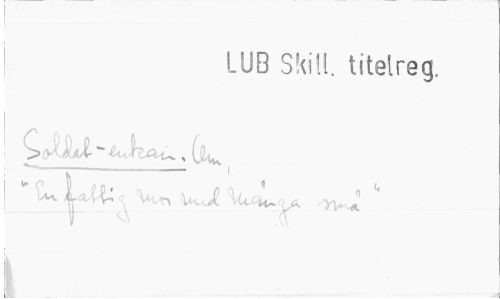 LUB Skill. titelreg.
Soldat-enkan. Om,
"En fattig mor med många små"